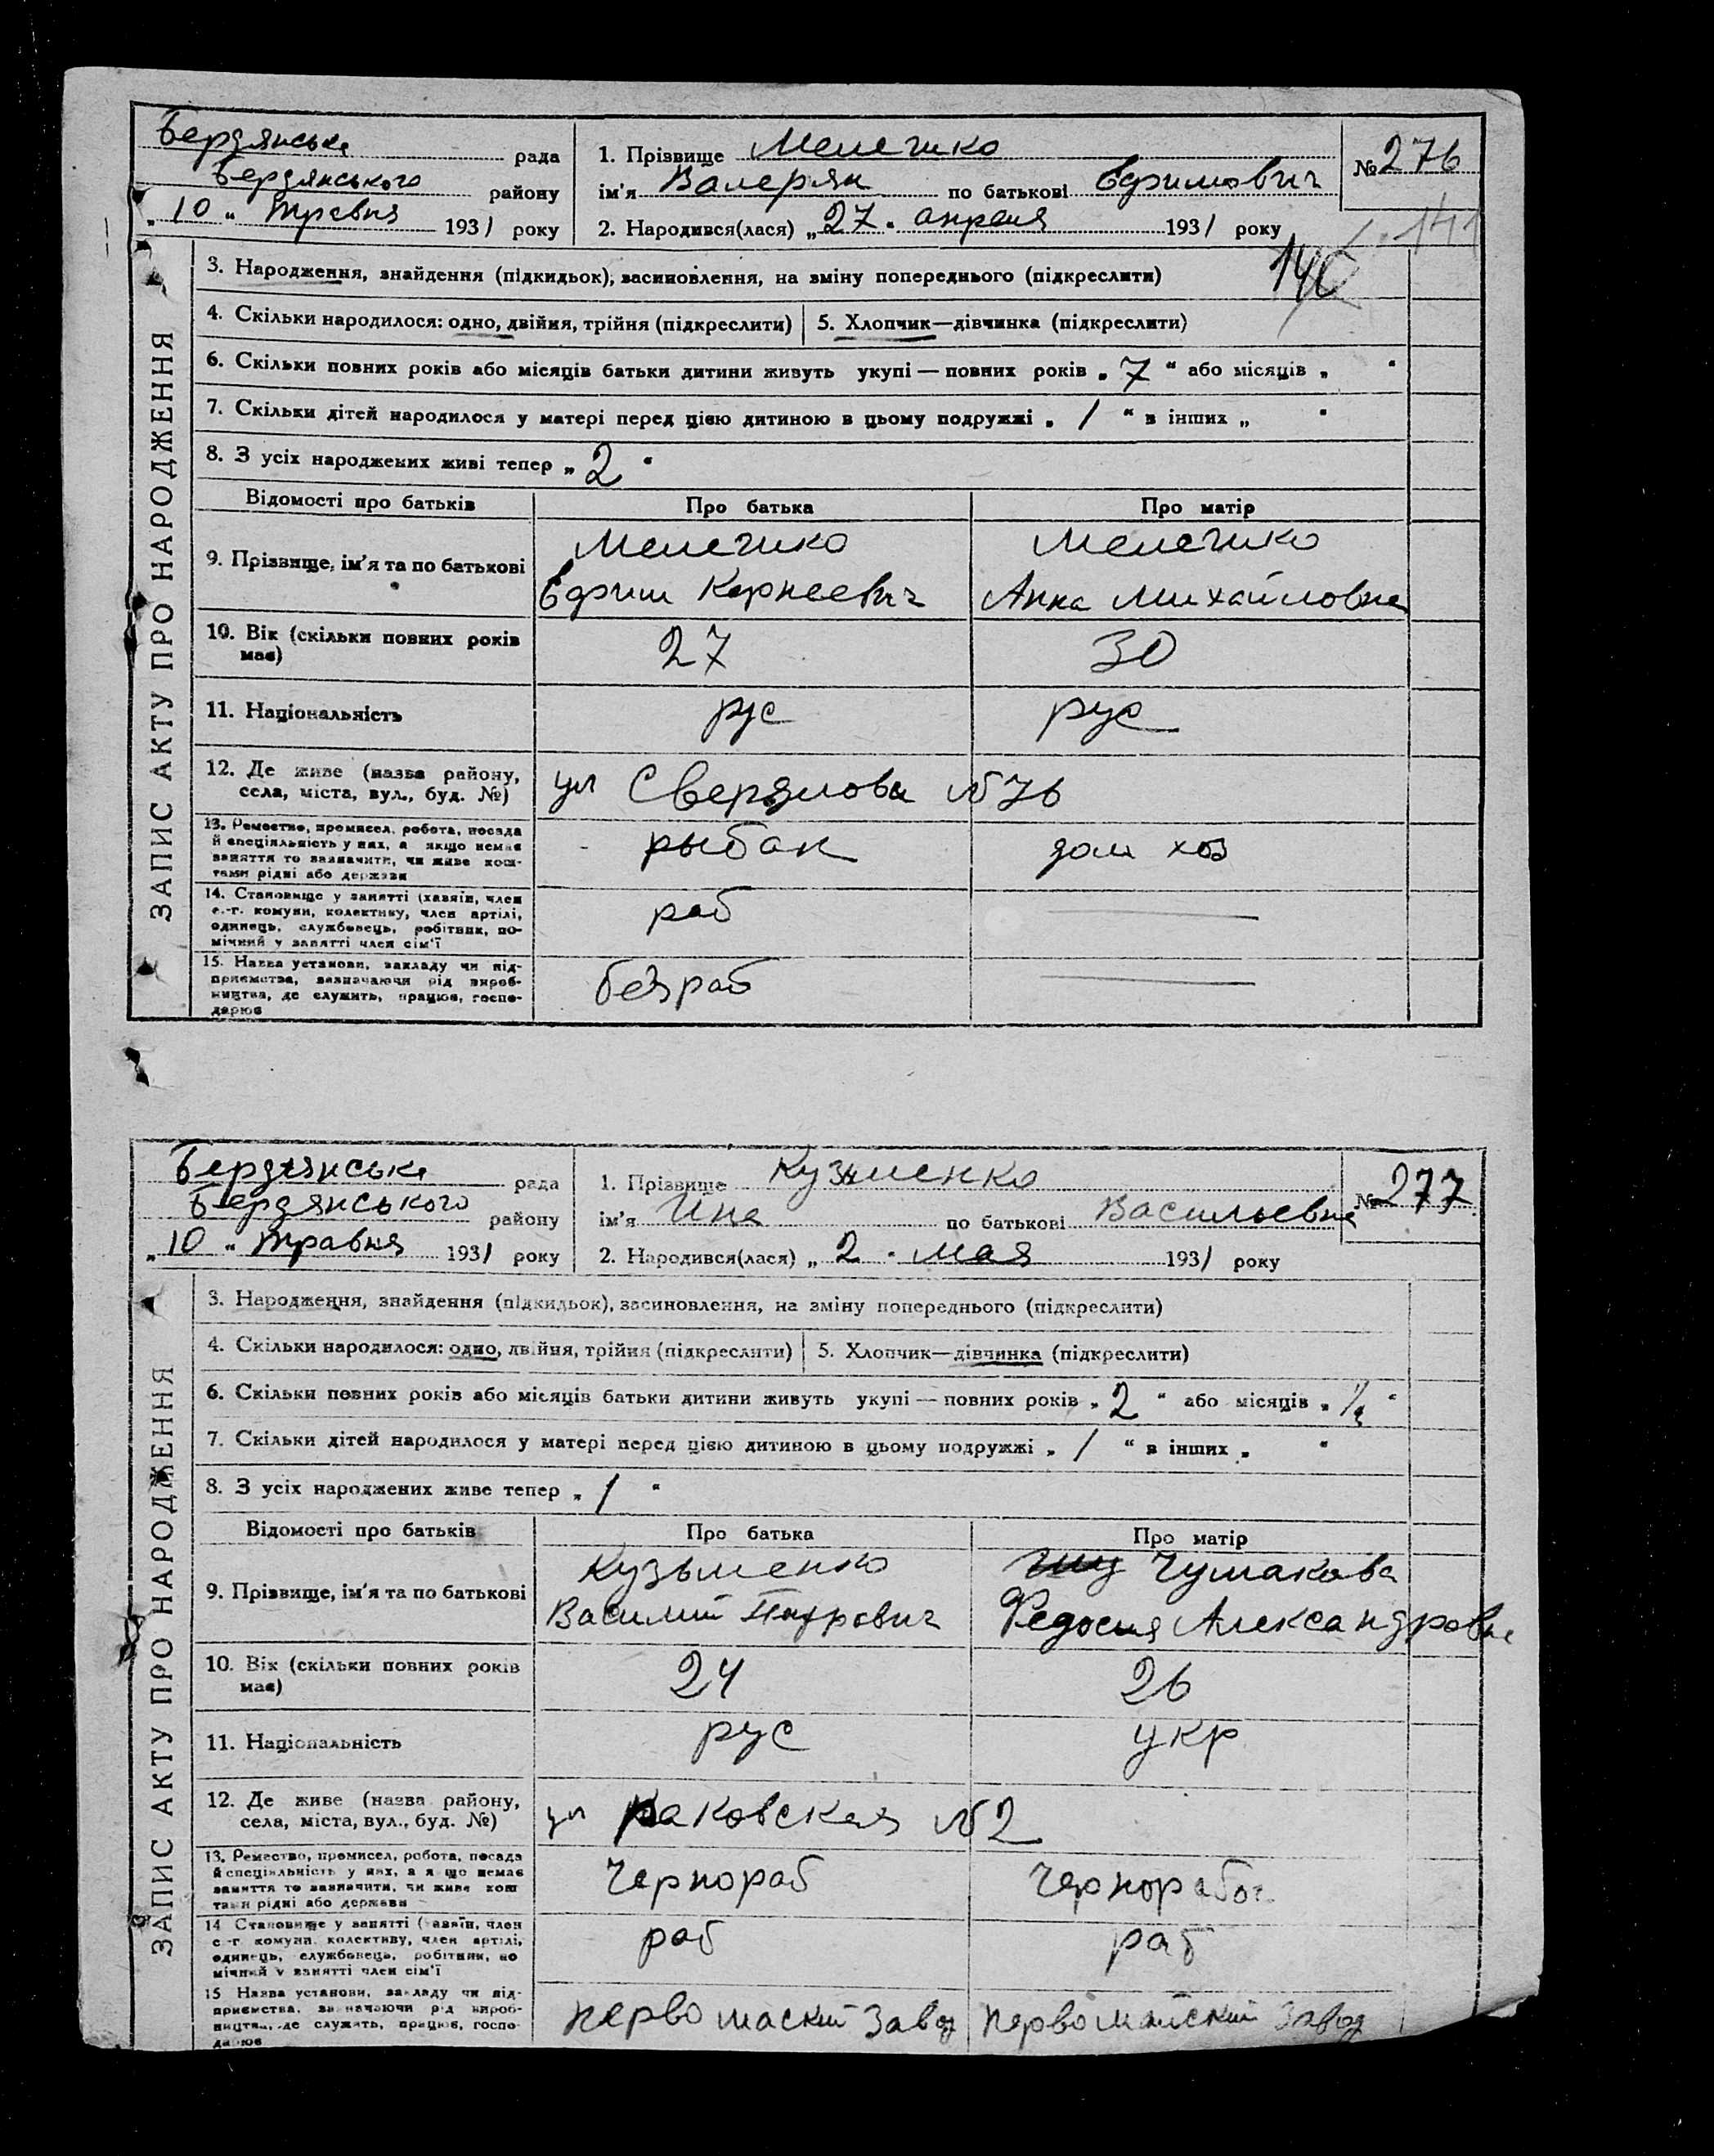 Бердянська рада
Бердянського району
„10“ травня 1931 року
1. Прізвище Мелечико
ім'я Валерян по батькові Ефимович
2. Народився(лася) „27“ апреля 1931 року
№ 276
141
140
ЗАПИС АКТУ ПРО НАРОДЖЕННЯ
3. Народження, знайдення (підкидьок), засиновлення, на зміну попереднього (підкреслити)
4. Скільки народилося: одно, двійня, трійня (підкреслити) 5. Хлопчик—дівчинка (підкреслити)
6. Скільки повних років або місяців батьки дитини живуть укупі — повних років „7“ або місяців „ “
7. Скільки дітей народилося у матері перед цією дитиною в цьому подружжі „1“ в інших „ “
8. З усіх народжених живі тепер „2“
Відомості про батьків Про батька Про матір
9. Прізвище, ім'я та по батькові
Мелечико
Ефим Корнеевич
Мелечико
Анна Михайловна
10. Вік (скільки повних років
має)
27 30
11. Національність рус рус
12. Де живе (назва району,
села, міста, вул., буд. №)
ул Свердлова №76
13. Ремество, промисел, робота, посада
й спеціяльність у них, а якщо немає
заняття то зазначити, чи живе кош-
тами рідні або держави
рыбак дом хоз
14. Становище у занятті (хазяїн, член
с.-г. комуни, колективу, член артілі,
одинець, службовець, робітник, по-
мічний у занятті член сім'ї
раб
15. Назва установи, закладу чи під-
приємства, зазначаючи рід вироб-
ництва, де служить, працює, госпо-
дарює
безраб
Бердянська рада
Бердянського району
„10“ травня 1931 року
1. Прізвище Кузьменко
ім'я Инна по батькові Васильевна
2. Народився(лася) „2“ мая 1931 року
№ 277
ЗАПИС АКТУ ПРО НАРОДЖЕННЯ
3. Народження, знайдення (підкидьок), засиновлення, на зміну попереднього (підкреслити)
4. Скільки народилося: одно, двійня, трійня (підкреслити) 5. Хлопчик—дівчинка (підкреслити)
6. Скільки повних років або місяців батьки дитини живуть укупі — повних років „2“ або місяців „½“
7. Скільки дітей народилося у матері перед цією дитиною в цьому подружжі „1“ в інших „ “
8. З усіх народжених живе тепер „1“
Відомості про батьків Про батька Про матір
9. Прізвище, ім'я та по батькові
Кузьменко
Василий Петрович
Чумакова
Федосия Александровна
10. Вік (скільки повних років
має)
24 26
11. Національність рус укр
12. Де живе (назва району,
села, міста, вул., буд. №)
ул Раковская №2
13. Ремество, промисел, робота, посада
й спеціяльність у них, а якщо немає
заняття то зазначити, чи живе кош
тами рідні або держави
Чернораб Чернорабоч
14 Становище у занятті (хазяїн, член
с.-г. комуни, колективу, член артілі,
одинець, службовець, робітник, по
мічний у занятті член сім'ї
раб раб
15 Назва установи, закладу чи під-
приємства, зазначаючи рід вироб-
ництва, де служить, працює, госпо-
дарює
первомаский завод первомайский завод